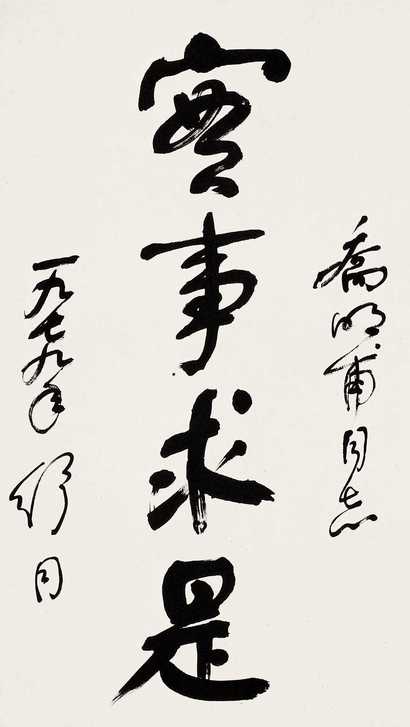 喬明甫同志
實事求是
一九七九年
舒同